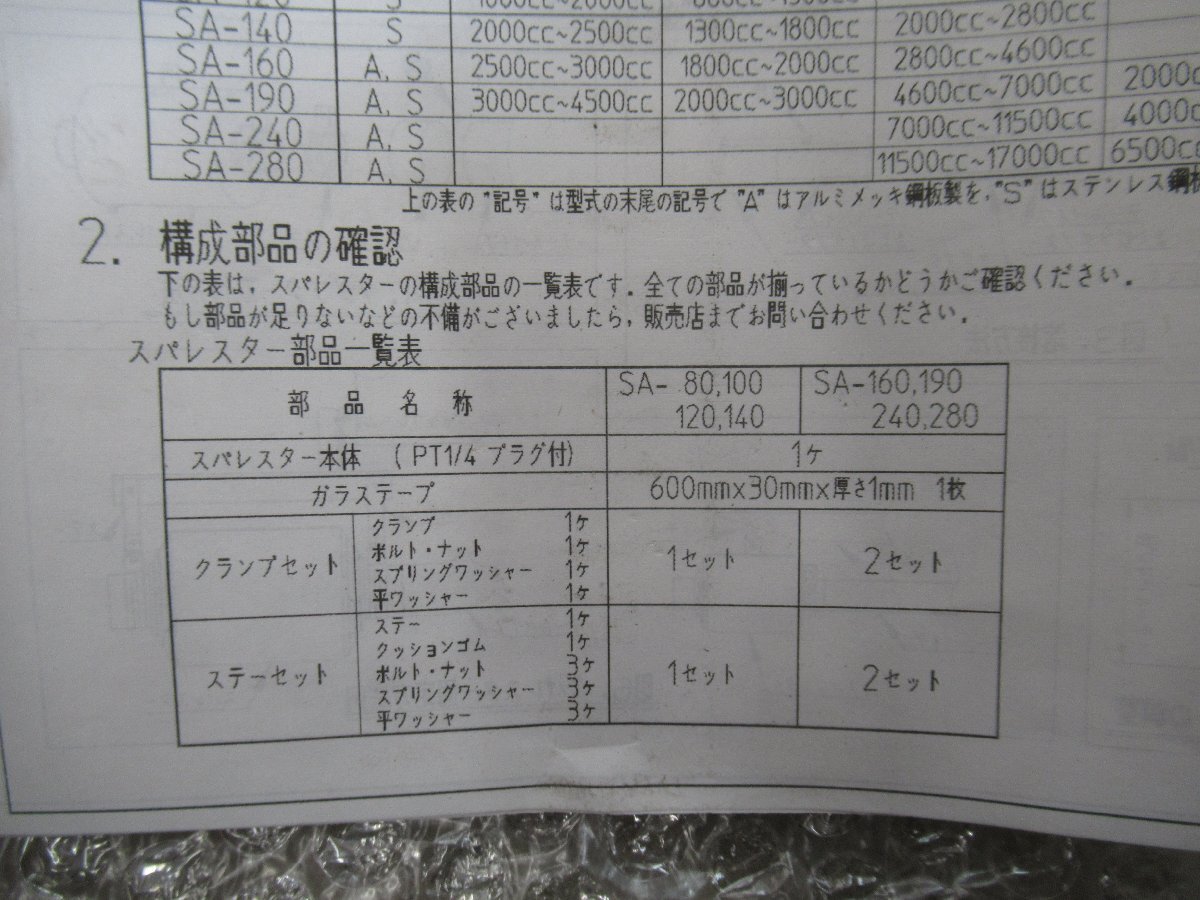 SA-140 S 2000cc~2500cc 1300cc~1800cc 2000cc~2800cc
SA-160 A, S 2500cc~3000cc 1800cc~2000cc 2800cc~4600cc
SA-190 A, S 3000cc~4500cc 2000cc~3000cc 4600cc~7000cc 2000c
SA-240 A, S 7000cc~11500cc 4000c
SA-280 A, S 11500cc~17000cc 6500cc
上の表の"記号"は型式の末尾の記号で"A"はアルミメッキ鋼板製を,"S"はステンレス鋼板
2. 構成部品の確認
下の表は,スパレスターの構成部品の一覧表です.全ての部品が揃っているかどうかご確認ください.
もし部品が足りないなどの不備がございましたら,販売店までお問い合わせください.
スパレスター部品一覧表
部品名称 SA- 80,100 SA-160,190
120,140 240,280
スパレスター本体 ( PT1/4 プラグ付) 1ケ
ガラステープ 600mm×30mm×厚さ1mm 1枚
クランプ 1ケ
ボルト・ナット 1ケ
クランプセット スプリングワッシャー 1ケ 1セット 2セット
平ワッシャー 1ケ
ステー 1ケ
クッションゴム 1ケ
ステーセット ボルト・ナット 3ケ 1セット 2セット
スプリングワッシャー 3ケ
平ワッシャー 3ケ